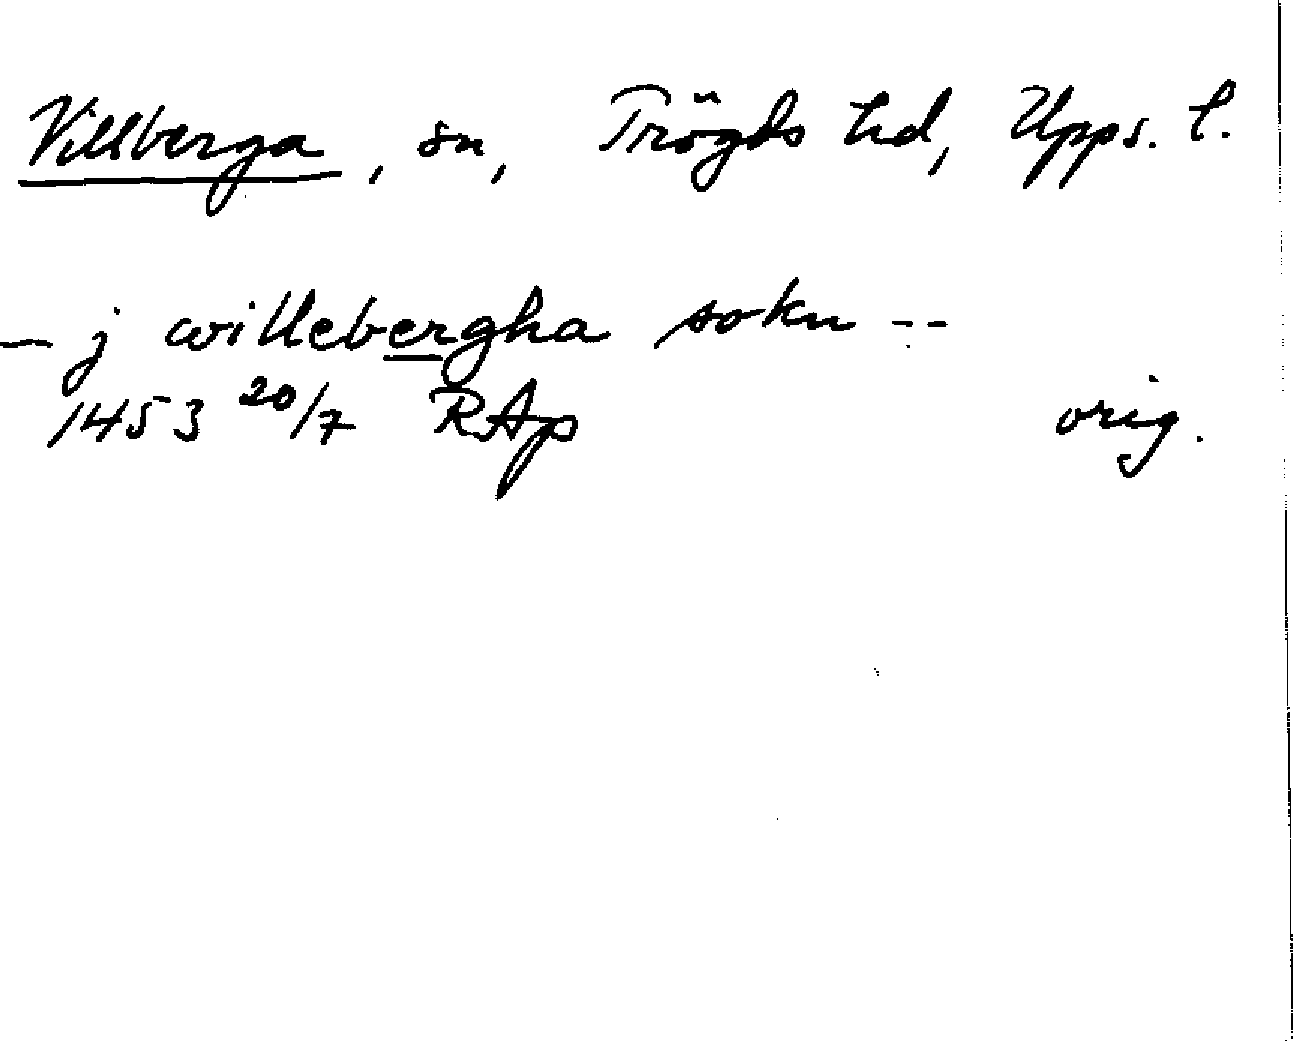 Villberga, sn, Trögds hd, Upps. l.
— j willebergha sokn --
1453 20/7 RAp orig.